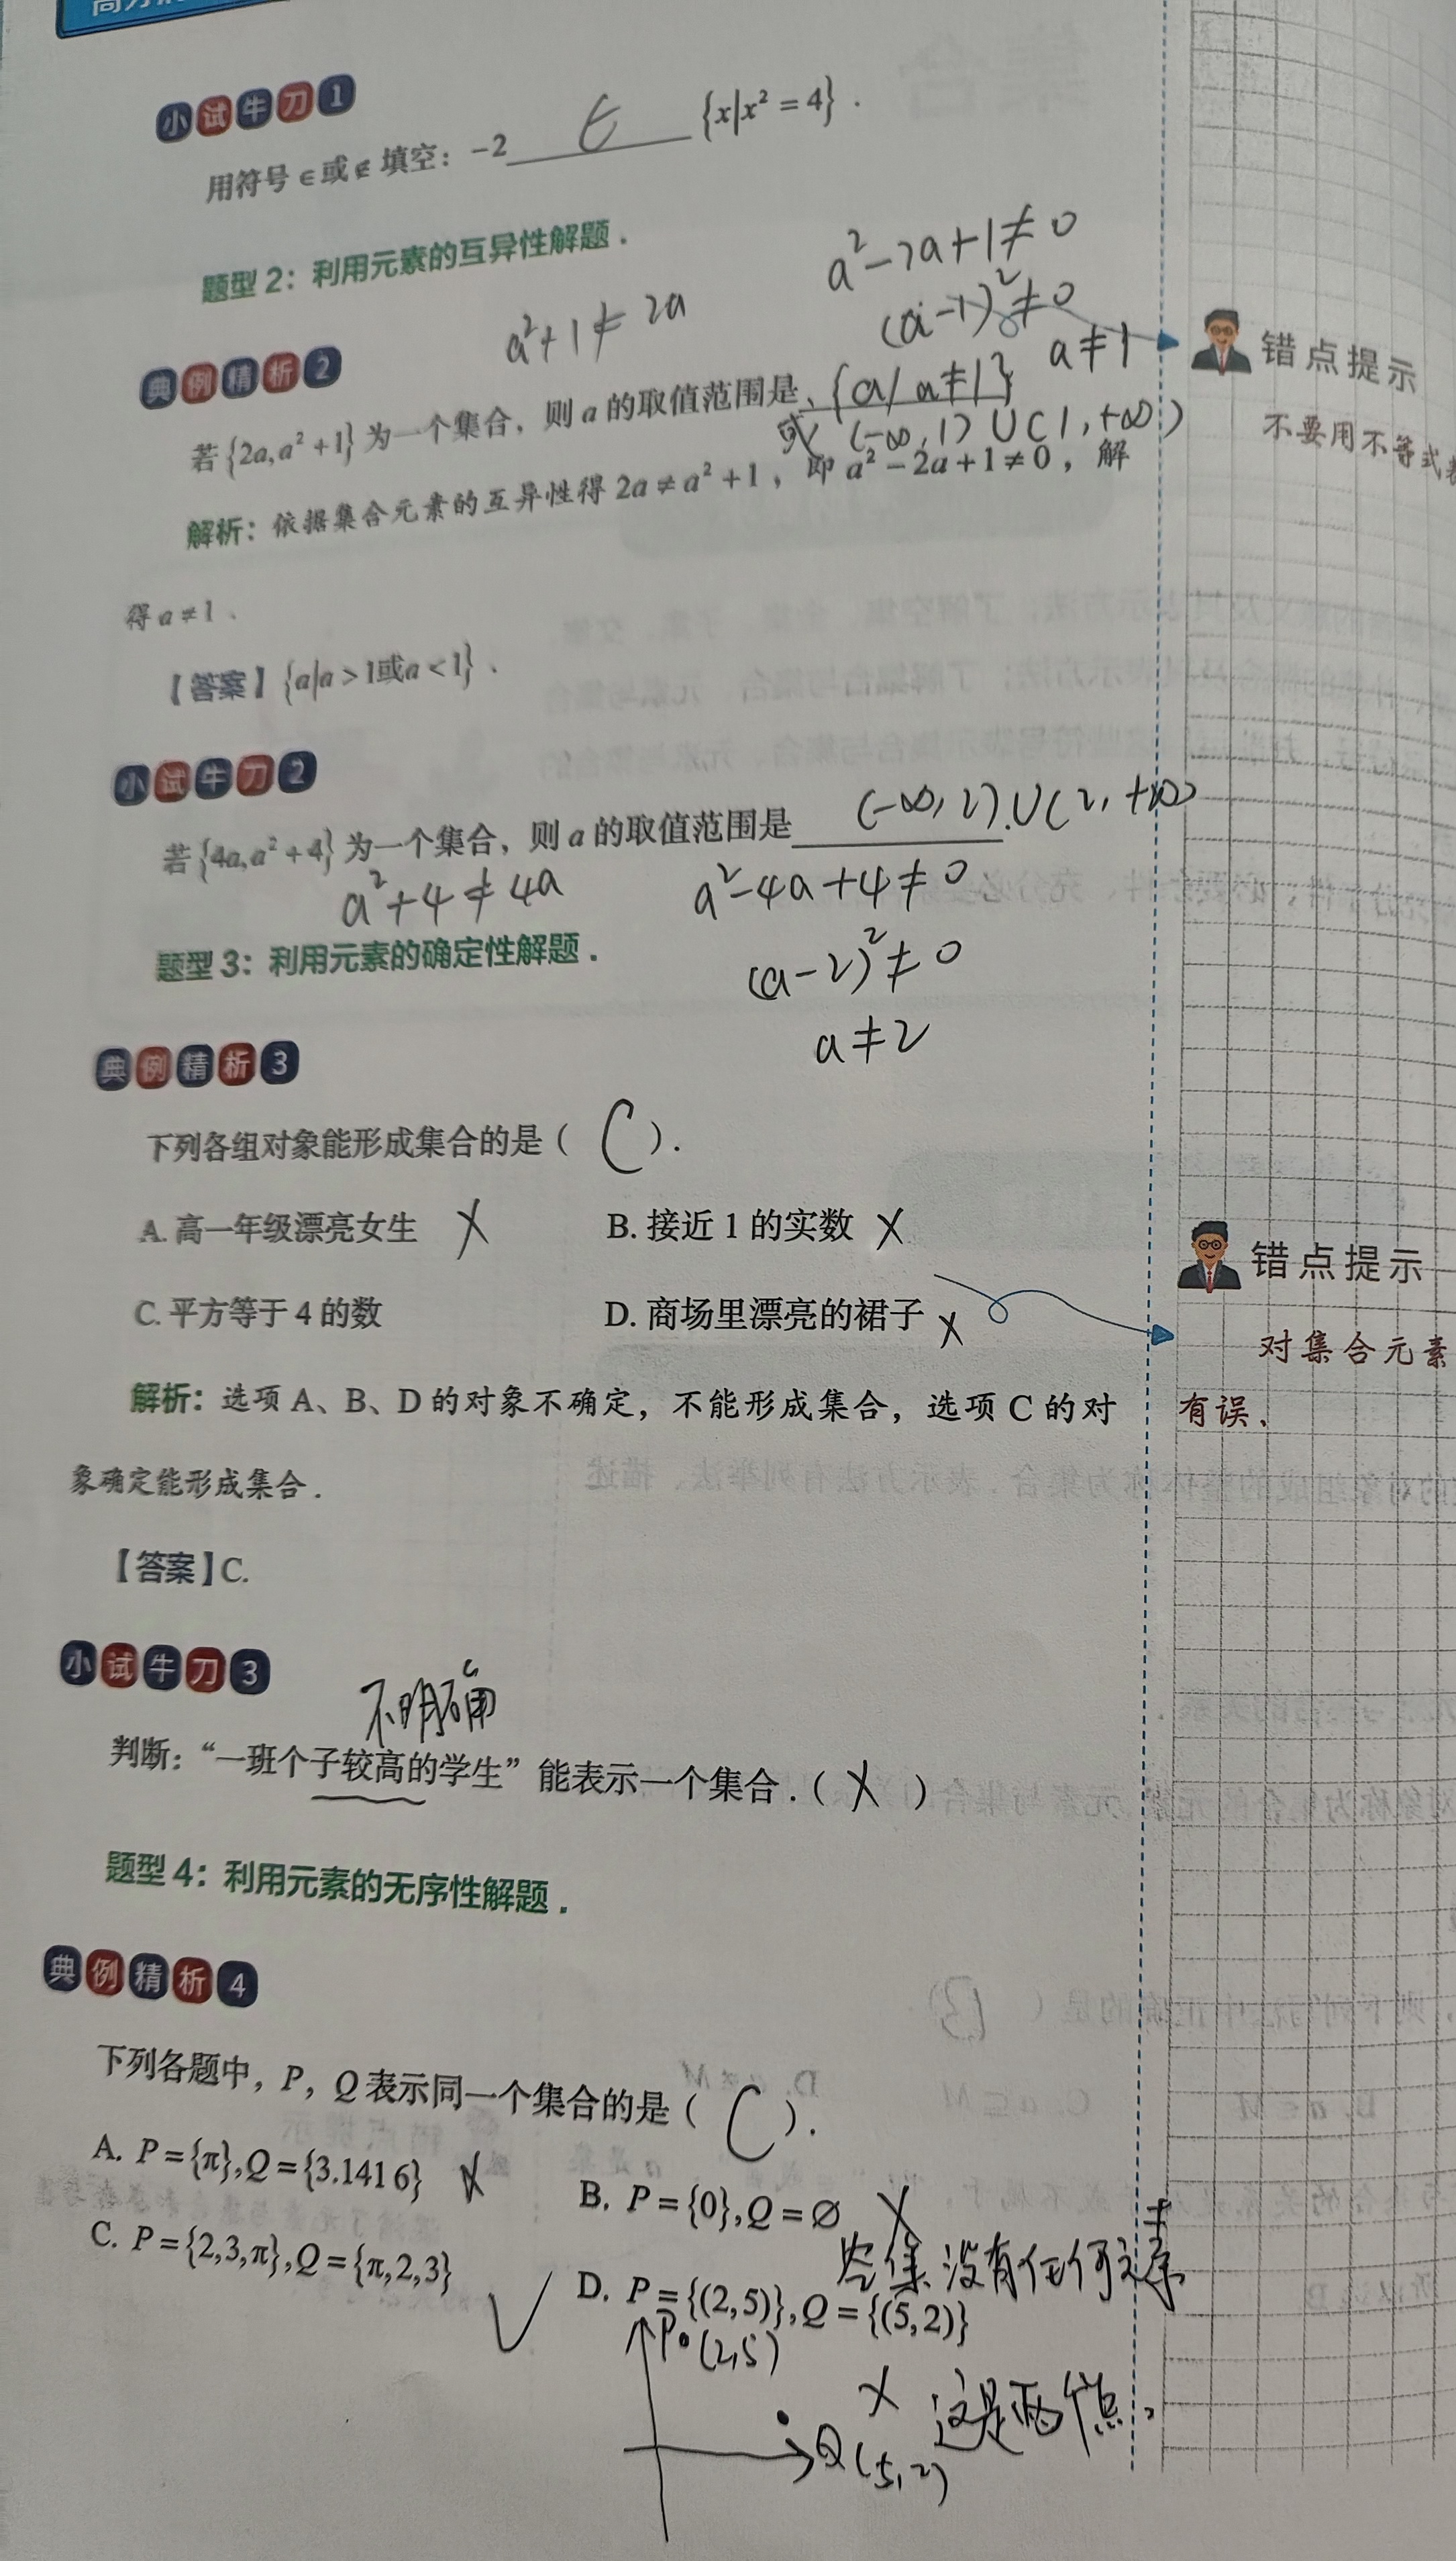 小试牛刀1
用符号∈或∉填空：-2 ∈ {x|x²=4}．
题型2：利用元素的互异性解题．
a²-2a+1≠0
a²+1≠2a
(a-1)²≠0
a≠1
错点提示
不要用不等式
典例精析2
若{2a,a²+1}为一个集合，则a的取值范围是 {a|a≠1}
或 (-∞,1)∪(1,+∞)
解析：依据集合元素的互异性得2a≠a²+1，即a²-2a+1≠0，解
得a≠1．
【答案】{a|a>1或a<1}．
小试牛刀2
若{4a,a²+4}为一个集合，则a的取值范围是 (-∞,2)∪(2,+∞)．
a²+4≠4a
a²-4a+4≠0
(a-2)²≠0
a≠2
题型3：利用元素的确定性解题．
典例精析3
下列各组对象能形成集合的是（ C ）．
A. 高一年级漂亮女生 ×
B. 接近1的实数 ×
C. 平方等于4的数
D. 商场里漂亮的裙子 ×
错点提示
对集合元素
有误．
解析：选项A、B、D的对象不确定，不能形成集合，选项C的对
象确定能形成集合．
【答案】C.
小试牛刀3
不明确
判断：“一班个子较高的学生”能表示一个集合．（ × ）
题型4：利用元素的无序性解题．
典例精析4
下列各题中，P，Q表示同一个集合的是（ C ）．
A. P={π},Q={3.1416} ×
B. P={0},Q=∅ ×
空集没有任何元素
C. P={2,3,π},Q={π,2,3} √
D. P={(2,5)},Q={(5,2)}
P(2,5)
× 这是两个点．
Q(5,2)